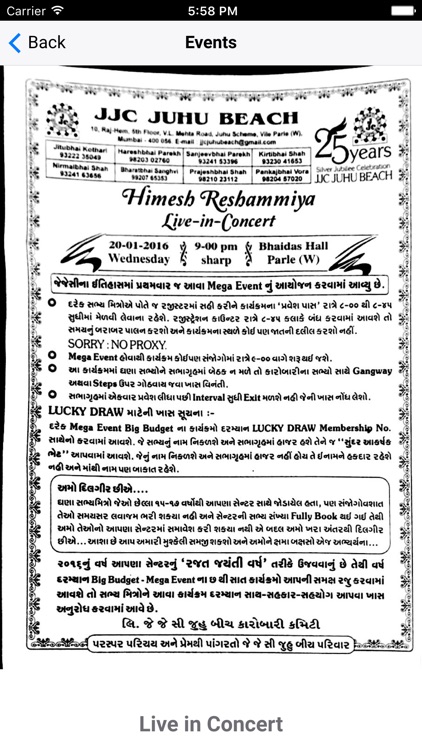 Carrier 5:58 PM
Back Events
JJC JUHU BEACH
10, Raj-Hem, 5th Floor, V.L. Mehta Road, Juhu Scheme, Vile Parle (W),
Mumbai - 400 056 E-mail jjcjuhubeach@gmail.com
Jitubhai Kothari Hareshbhai Parekh Sanjeevbhai Parekh Kirtibhai Shah
93222 35049 98203 02760 93241 53396 93230 41653
Nirmalbhai Shah Bharatbhai Sanghvi Prajeshbhai Shah Pankajbhai Vora
93241 63656 99207 65353 98210 23112 98204 57020
25 years
Silver Jubilee Celebration
JJC JUHU BEACH
Himesh Reshammiya
Live-in-Concert
20-01-2016 9-00 pm Bhaidas Hall
Wednesday sharp Parle (W)
જેજેસીના ઈતિહાસમાં પ્રથમવાર જ આવા Mega Event નું આયોજન કરવામાં આવ્યુ છે.
દરેક સભ્ય મિત્રોએ પોતે જ રજીસ્ટરમાં સહી કરીને કાર્યક્રમના 'પ્રવેશ પાસ' રાત્રે ૮-૦૦ થી ૮-૪૫
સુધીમાં મેળવી લેવાના રહેશે. રજીસ્ટ્રેશન કાઉન્ટર રાત્રે ૮-૪૫ કલાકે બંધ કરવામાં આવશે તો
સમયનું બરાબર પાલન કરશો અને કાર્યક્રમના સ્થળે કોઈ પણ જાતની દલીલ કરશો નહીં.
SORRY : NO PROXY.
Mega Event હોવાથી કાર્યક્રમ કોઈપણ સંજોગોમાં રાત્રે ૯-૦૦ વાગે શરૂ થઈ જશે.
આ કાર્યક્રમમાં ઘણા સભ્યોને સભાગૃહમાં બેઠક ન મળે તો કારોબારીના સભ્યો સાથે Gangway
અથવા Steps ઉપર ગોઠવાય જવા ખાસ વિનંતી.
સભાગૃહમાં એકવાર પ્રવેશ લીધા પછી Interval સુધી Exit મળશે નહી જેની ખાસ નોંધ લેશો.
LUCKY DRAW માટેની ખાસ સૂચના :-
દરેક Mega Event Big Budget ના કાર્યક્રમો દરમ્યાન LUCKY DRAW Membership No.
સાથેનો કરવામાં આવશે. જે સભ્યનું નામ નિકળશે અને સભાગૃહમાં હાજર હશે તેને જ "સુંદર આકર્ષક
ભેટ" આપવામાં આવશે. જેનું નામ નિકળશે અને સભાગૃહમાં હાજર નહીં હોય તે ઈનામને હકદાર રહેશે
નહીં અને માંથી નામ પણ બાકાત રહેશે.
અમો દિલગીર છીએ....
ઘણા સભ્યમિત્રો જેઓ છેલ્લા ૧૫-૧૭ વર્ષોથી આપણા સેન્ટર સાથે જોડાયેલ હતા, પણ સંજોગોવશાત
તેઓ સમયસર લવાજમ ભરી શક્યા નહી અને સેન્ટરની સભ્ય સંખ્યા Fully Book થઈ ગઈ તેથી
અમો તેઓનો આપણા સેન્ટરમાં સમાવેશ કરી શક્યા નથી એ બદલ અમો ખરા અંતરથી દિલગીર
છીએ... આશા છે આપ અમારી મુશ્કેલી સમજી શકશો અને અમોને ક્ષમા બક્ષસો એજ અભ્યર્થના...
૨૦૧૬નું વર્ષ આપણા સેન્ટરનું 'રજત જયંતી વર્ષ' તરીકે ઉજવવાનું છે તેથી વર્ષ
દરમ્યાન Big Budget - Mega Event ના છ થી સાત કાર્યક્રમો આપની સમક્ષ રજુ કરવામાં
આવશે તો સભ્ય મિત્રોને આવા કાર્યક્રમ દરમ્યાન સાથ-સહકાર-સહયોગ આપવા ખાસ
અનુરોધ કરવામાં આવે છે.
લિ. જે જે સી જુહુ બીચ કારોબારી કમિટી
પરસ્પર પરિચય અને પ્રેમથી પાંગરતો જે જે સી જુહુ બીચ પરિવાર
Live in Concert